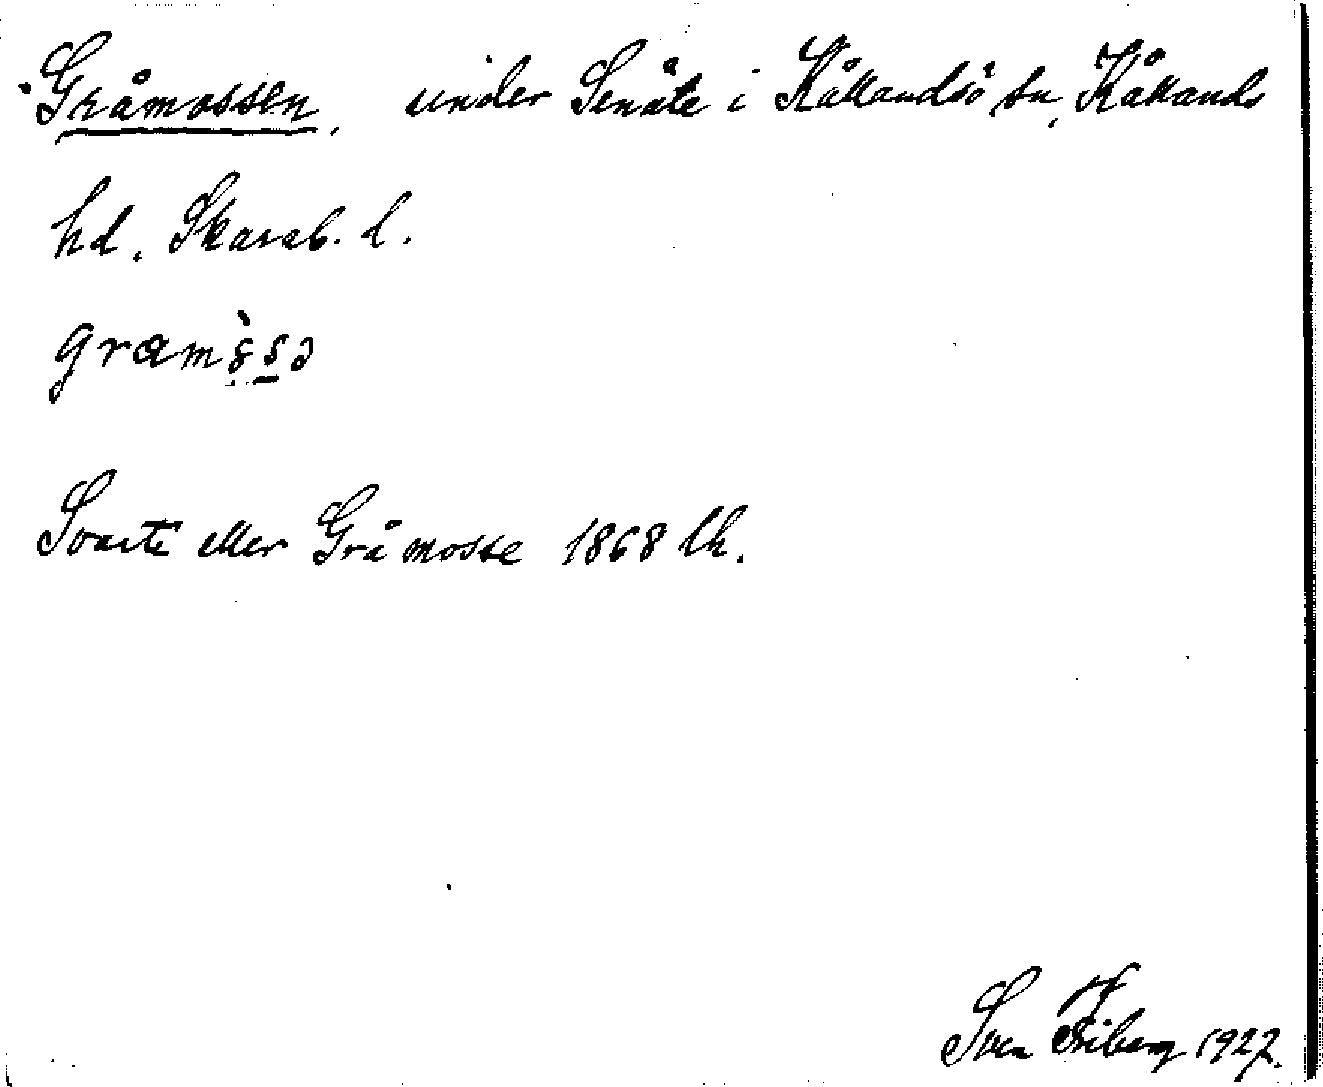 Gråmossen, under Senäte i Kållandsö sn, Kållands
hd. Skarab. l.
Svarte eller Grå mosse 1868 lk.
Sven Friberg 1927.